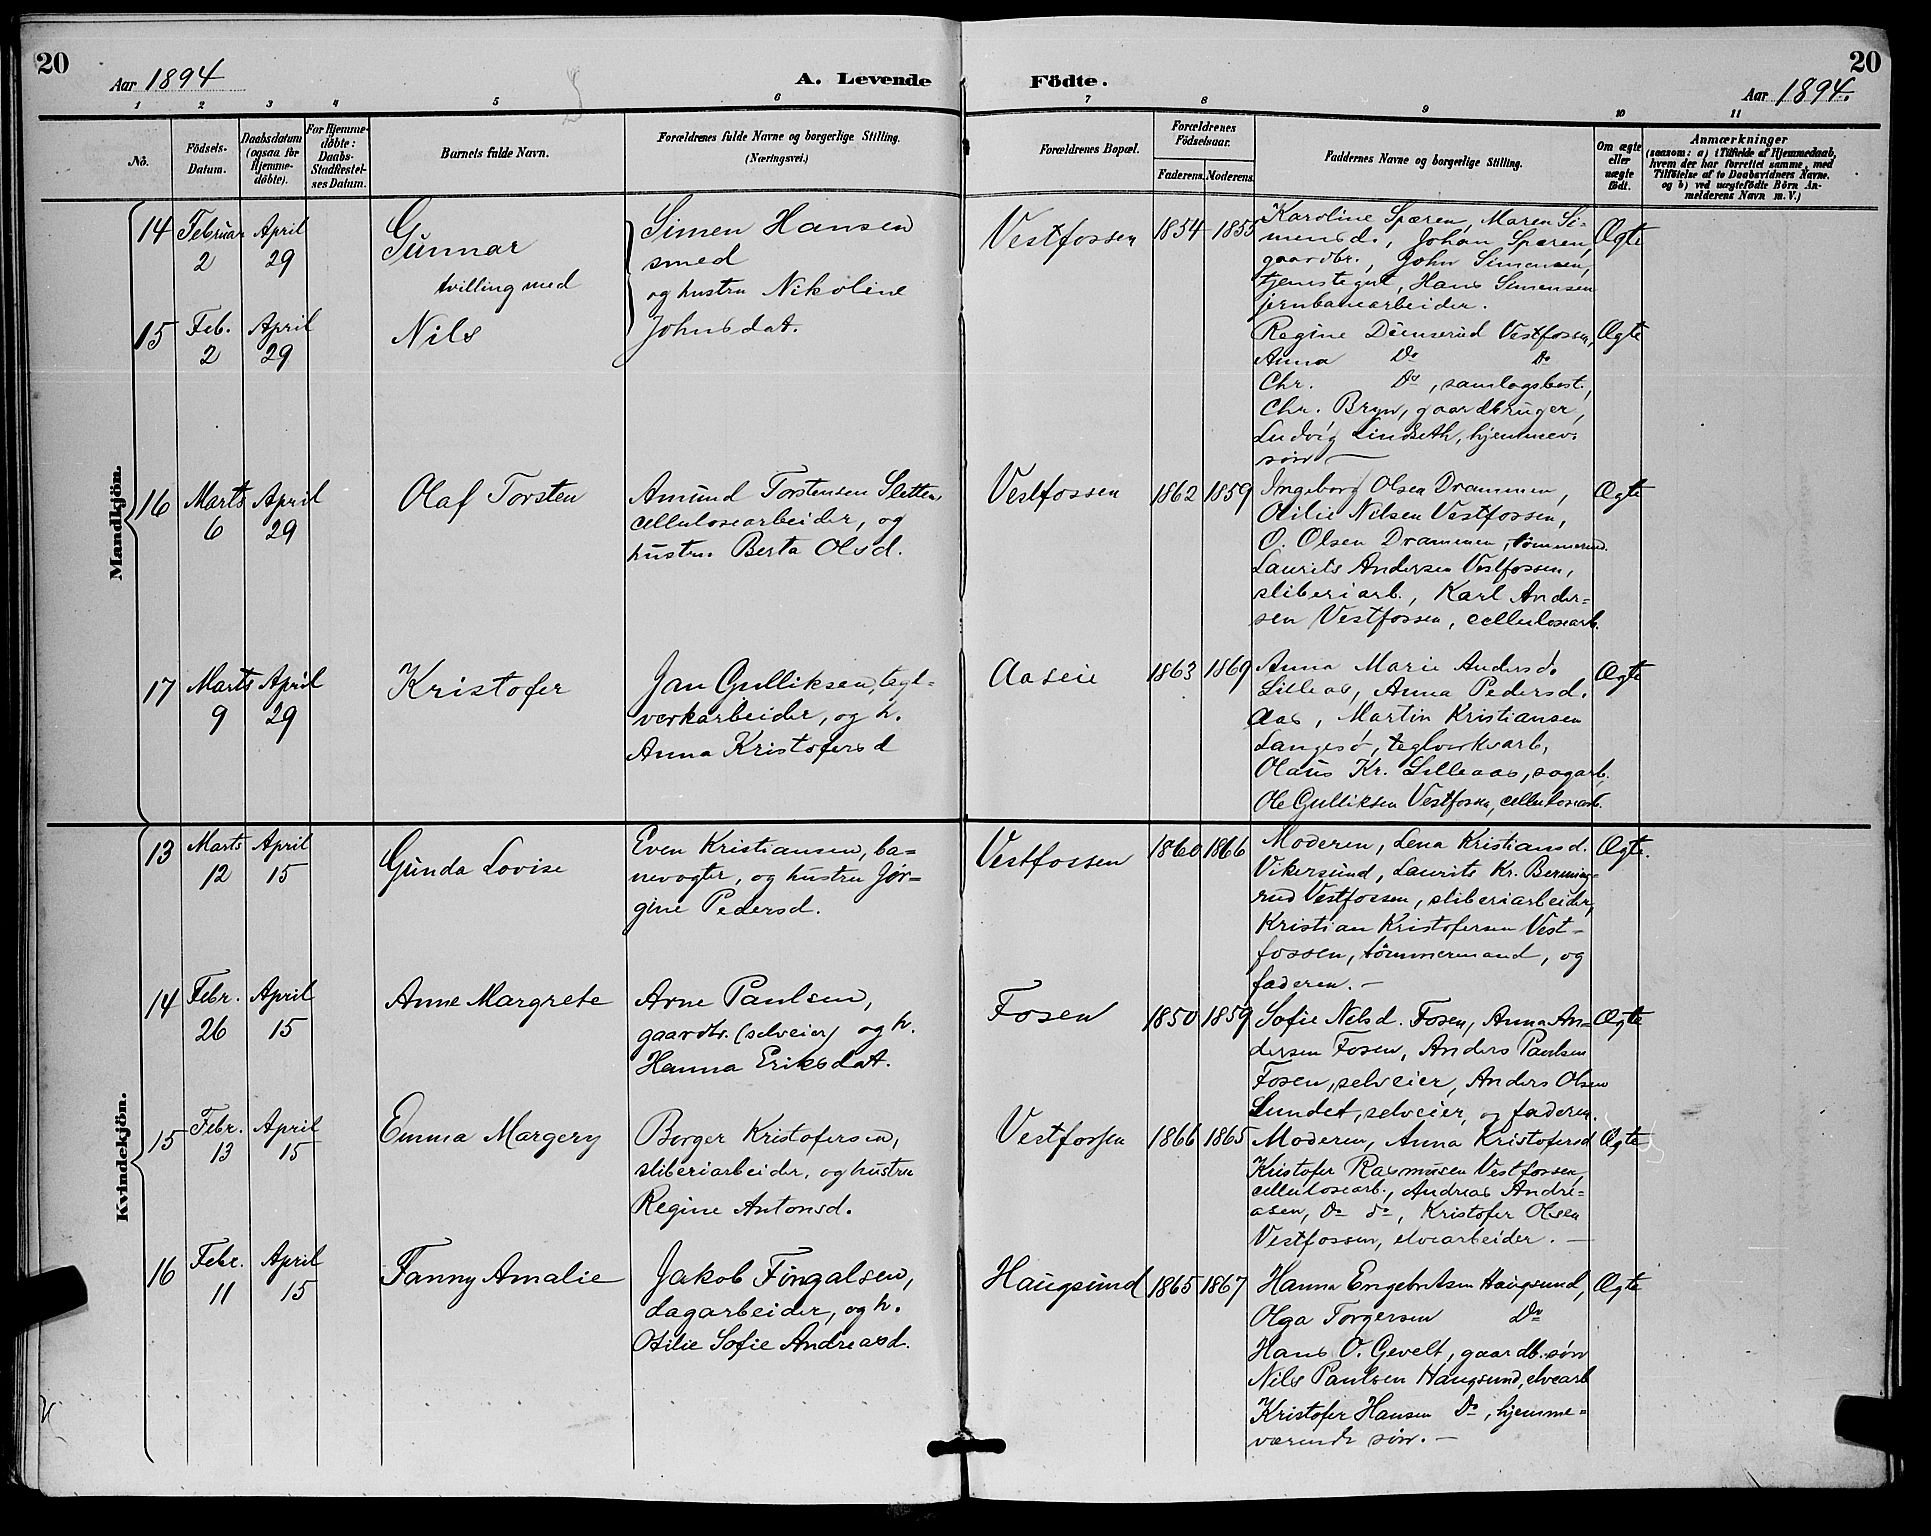 20
Aar 1894
A. Levende
Födte.
Aar 1894.
20
1 2 3 4 5 6 7 8 9 10 11
No.
Födsels-
Datum.
Daabsdatum
(ogsaa for
Hjemme-
döbte).
For Hjemme-
döbte:
Daabs-
Stadfæstel-
ses Datum.
Barnets fulde Navn.
Forældrenes fulde Navne og borgerlige Stilling.
(Næringsvei.)
Forældrenes Bopæl.
Forældrenes
Födselsaar.
Faderens. Moderens.
Faddernes Navne og borgerlige Stilling.
Om ægte
eller
uægte
födt.
Anmærkninger
(saasom: a) i Tilfælde af Hjemmedaab,
hvem der har forrettet samme, med
Tilföielse af to Daabsvidners Navne.
og b) ved uægtefödte Börn An-
melderens Navn m. V.)
Mandkjön.
14
Februar
2
April
29
Gunnar
tvilling med
Simen Hansen
smed
og hustru Nikoline
Johnsdat.
Vestfossen
1854 1855
Karoline Spæren, Maren Si-
mensd., Johan Spæren,
gaardbr., John Simensen,
tjenstegut, Hans Simensen
jernbanearbeider.
Ægte
15
Feb.
2
April
29
Nils
Regine Dünserud Vestfossen,
Anna Do Do
Chr. Do, samlagsbest.,
Chr. Bryn, gaardbruger,
Ludvig Lindseth, hjemmev.
søn —
Ægte
16
Marts
6
April
29
Olaf Torsten
Amund Torstensen Sletten
cellulosearbeider, og
hustru Berta Olsd.
Vestfossen
1862 1859
Ingeborg Olsen Drammen,
Otilie Nilsen Vestfossen,
O. Olsen Drammen, tømmermd.
Laurits Andersen Vestfossen,
sliberiarb., Karl Ander=
sen Vestfossen, cellulosearb.
Ægte
17
Marts
9
April
29
Kristofer
Jan Gulliksen, tegl-
verkarbeider, og h.
Anna Kristofersd
Aaseie
1863 1869
Anna Marie Andersd.
Lilleaas, Anna Pedersd.
Aas, Martin Kristiansen
Langesø, teglverksarb,
Olaus Kr. Lilleaas, sagarb,
Ole Gulliksen Vestfossen, cellulosearb.
Ægte
Kvindekjön.
13
Marts
12
April
15
Gunda Lovise
Even Kristiansen, ba=
nevogter, og hustru Jør-
gine Pedersd.
Vestfossen
1860 1866
Moderen, Lena Kristiansd.
Vikersund, Laurits Kr.
rud Vestfossen, sliberiarbeider,
Kristian Kristofersen Vest-
fossen, tømmermand, og
faderen. —
Ægte.
14
Febr.
26
April
15
Anne Margrete
Arne Paulsen,
gaardbr. (selveier) og h.
Hanna Eriksdat.
Fosen
1850 1859
Sofie Nelsd. Fosen, Anna An-
dersen Fosen, Anders Paulsen
Fosen, selveier, Anders Olsen
Sundet, selveier, og faderen.
Ægte
15
Febr.
13
April
15
Emma Margery
Borger Kristofersen,
sliberiarbeider, og hustru
Regine Antonsd.
Vestfossen
1866 1865
Moderen, Anna Kristofersd
Kristofer Rasmusen Vestfossen,
cellulosearb., Andreas Andre=
asen, do do, Kristofer Olsen
Vestfossen, elvearbeider. —
Ægte
16
Febr.
11
April
15
Fanny Amalie
Jakob Fingalsen,
dagarbeider, og h.
Otilie Sofie Andreasd.
Haugsund
1865 1867
Hanna Engebretsen Haugsund,
Olga Torgersen Do
Hans O. Gevelt, gaardb. søn
Nils Paulsen Haugsund, elvearb
Kristofer Hansen Do, hjemme=
værende søn. —
Ægte